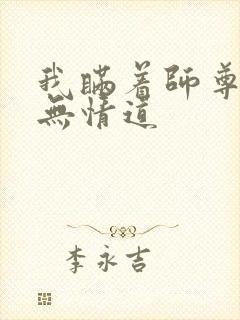 我瞞着師尊
無情道
李永吉